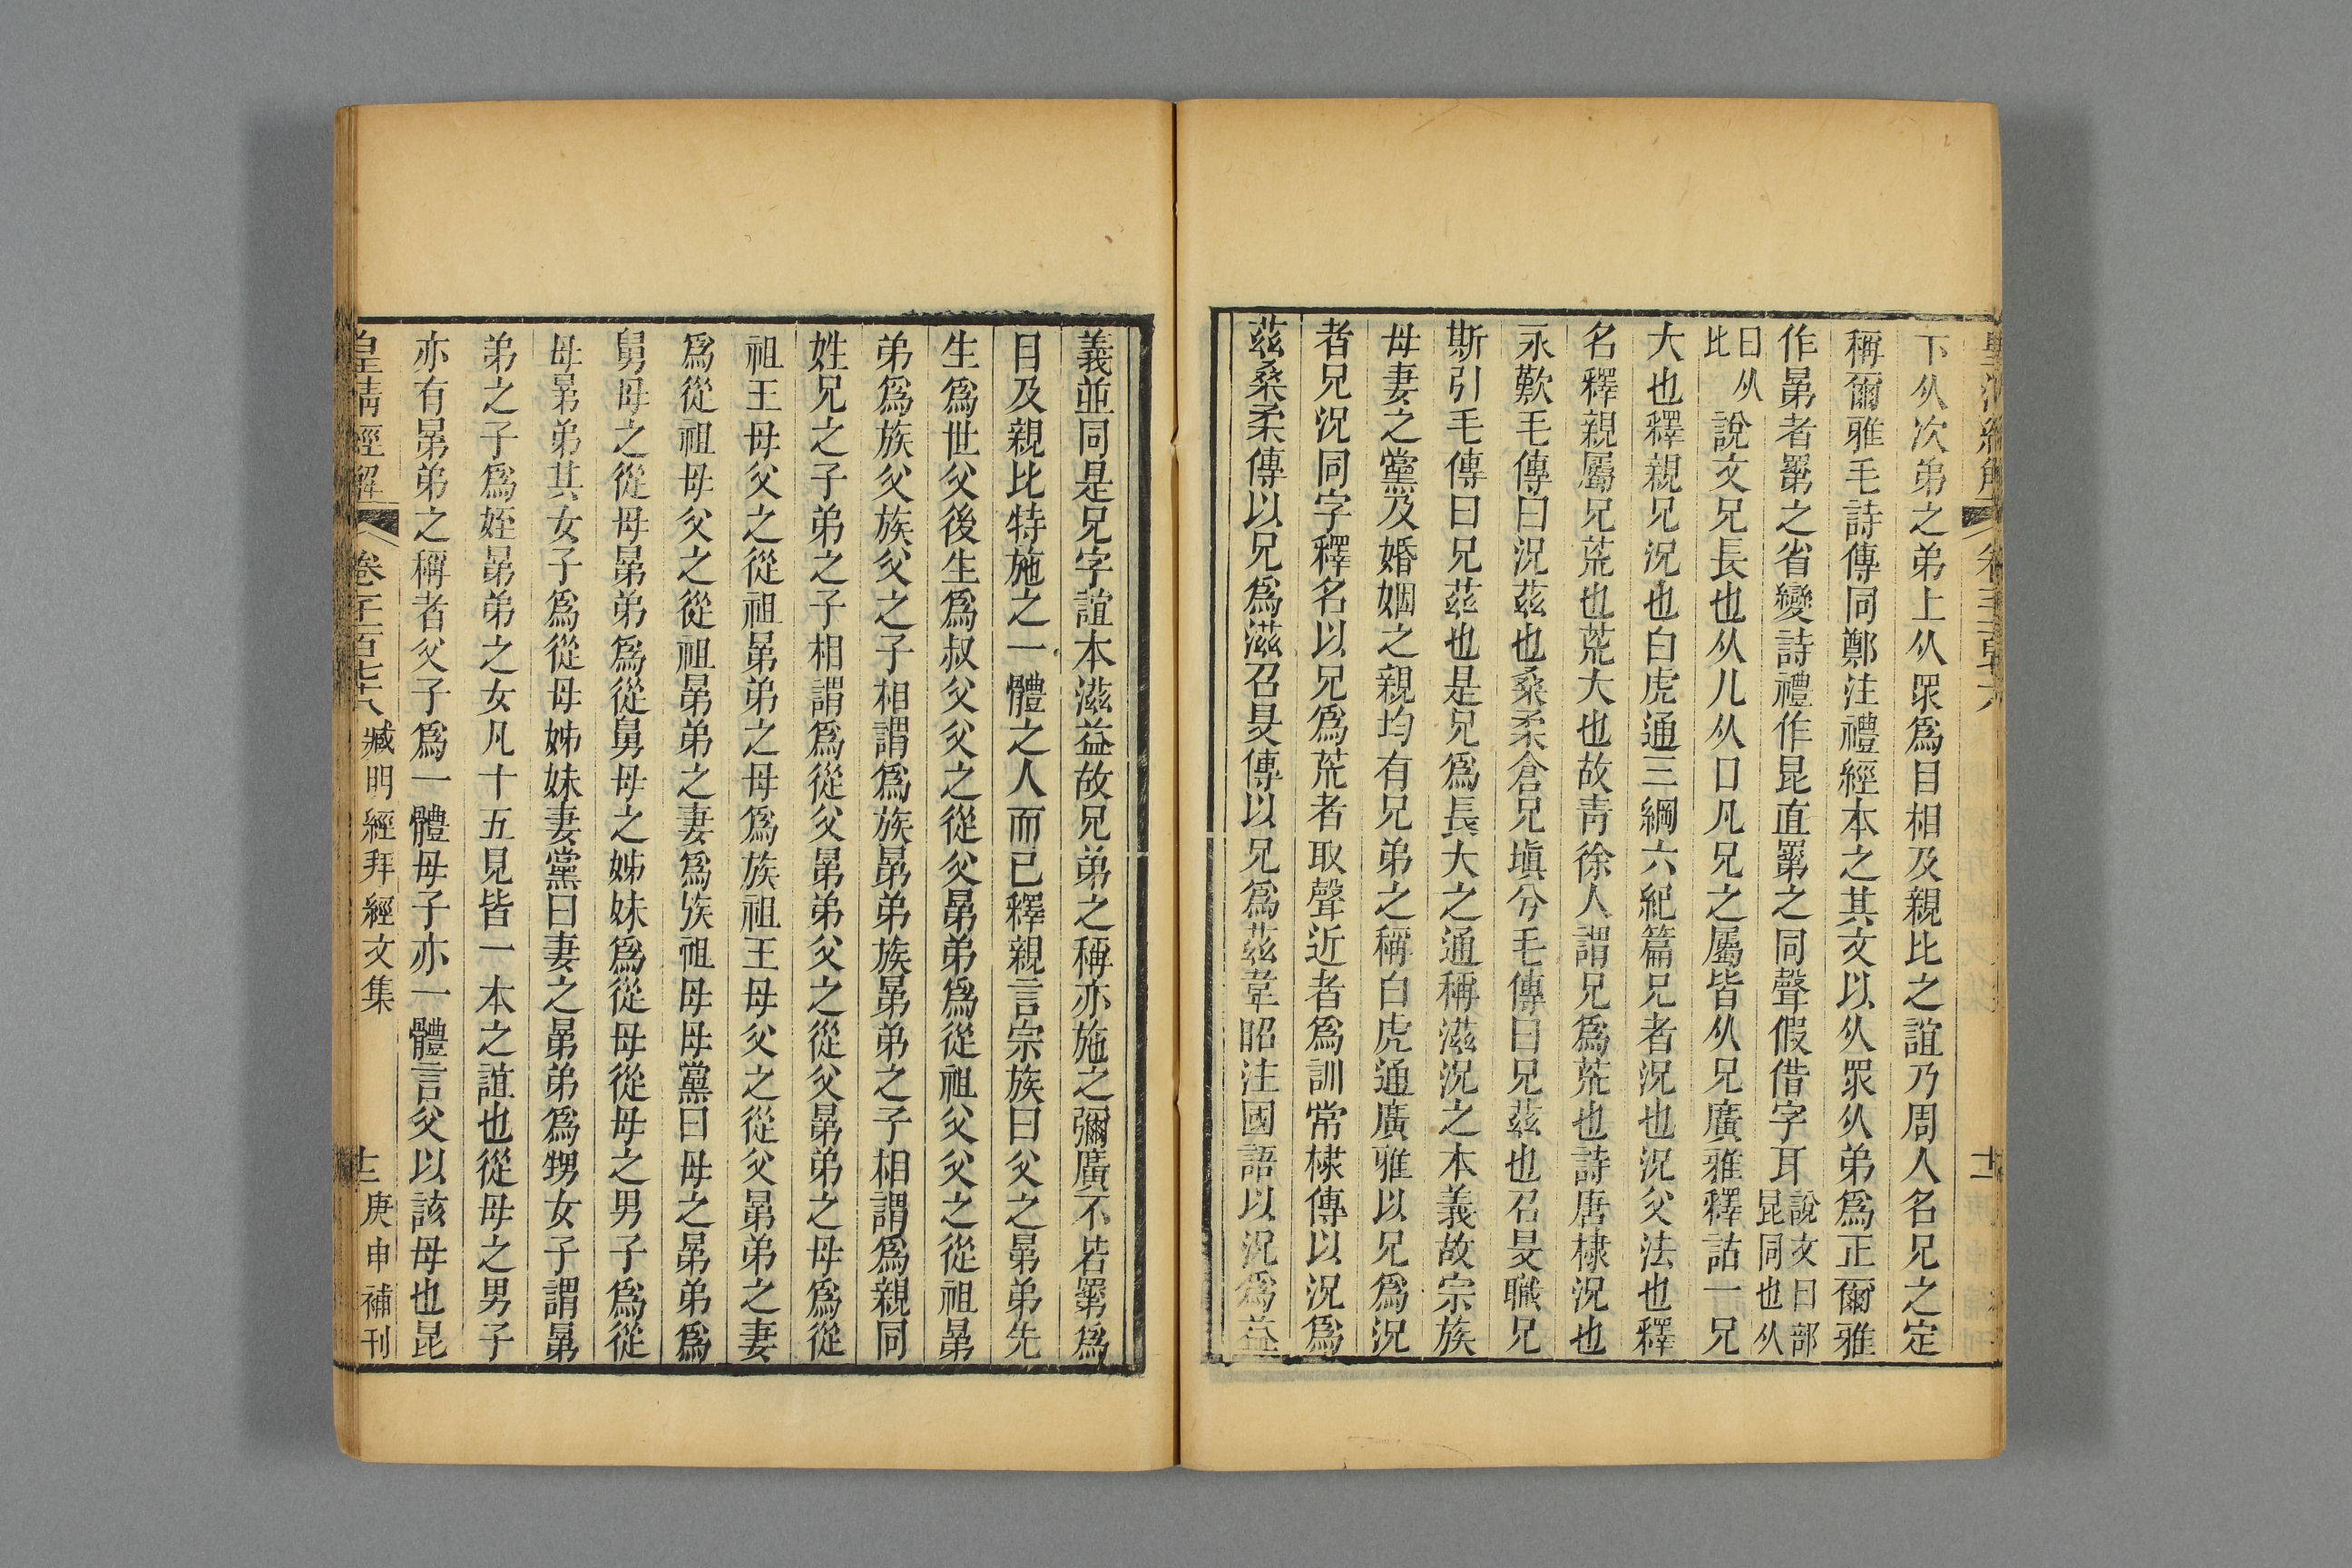 下从次弟之弟上从眔爲目相及親比之誼乃周人名兄之定
稱爾雅毛詩傳同鄭注禮經本之其文以从眔从弟爲正爾雅
作晜者䍓之省變詩禮作昆直䍓之同聲假借字耳說文曰部昆同也从
曰从比說文兄長也从儿从口凡兄之屬皆从兄廣雅釋詁一兄
大也釋親兄況也白虎通三綱六紀篇兄者況也況父法也釋
名釋親屬兄荒也荒大也故靑徐人謂兄爲荒也詩唐棣況也
永歎毛傳曰況茲也桑柔倉兄塡兮毛傳曰兄茲也召旻職兄
斯引毛傳曰兄茲也是兄爲長大之通稱滋況之本義故宗族
母妻之黨及婚姻之親均有兄弟之稱白虎通廣雅以兄爲況
者兄況同字釋名以兄爲荒者取聲近者爲訓常棣傳以況爲
茲桑柔傳以兄爲滋召旻傳以兄爲茲韋昭注國語以況爲益
義並同是兄字誼本滋益故兄弟之稱亦施之彌廣不若䍓爲
目及親比特施之一體之人而已釋親言宗族曰父之晜弟先
生爲世父後生爲叔父父之從父晜弟爲從祖父父之從祖晜
弟爲族父族父之子相謂爲族晜弟族晜弟之子相謂爲親同
姓兄之子弟之子相謂爲從父晜弟父之從父晜弟之母爲從
祖王母父之從祖晜弟之母爲族祖王母父之從父晜弟之妻
爲從祖母父之從祖晜弟之妻爲族祖母母黨曰母之晜弟爲
舅母之從母晜弟爲從舅母之姊妹爲從母從母之男子爲從
母晜弟其女子爲從母姊妹妻黨曰妻之晜弟爲甥女子謂晜
弟之子爲姪晜弟之女凡十五見皆一本之誼也從母之男子
亦有晜弟之稱者父子爲一體母子亦一體言父以該母也昆
皇淸經解
卷二百七十八
臧明經拜經文集
十二
庚申補刊